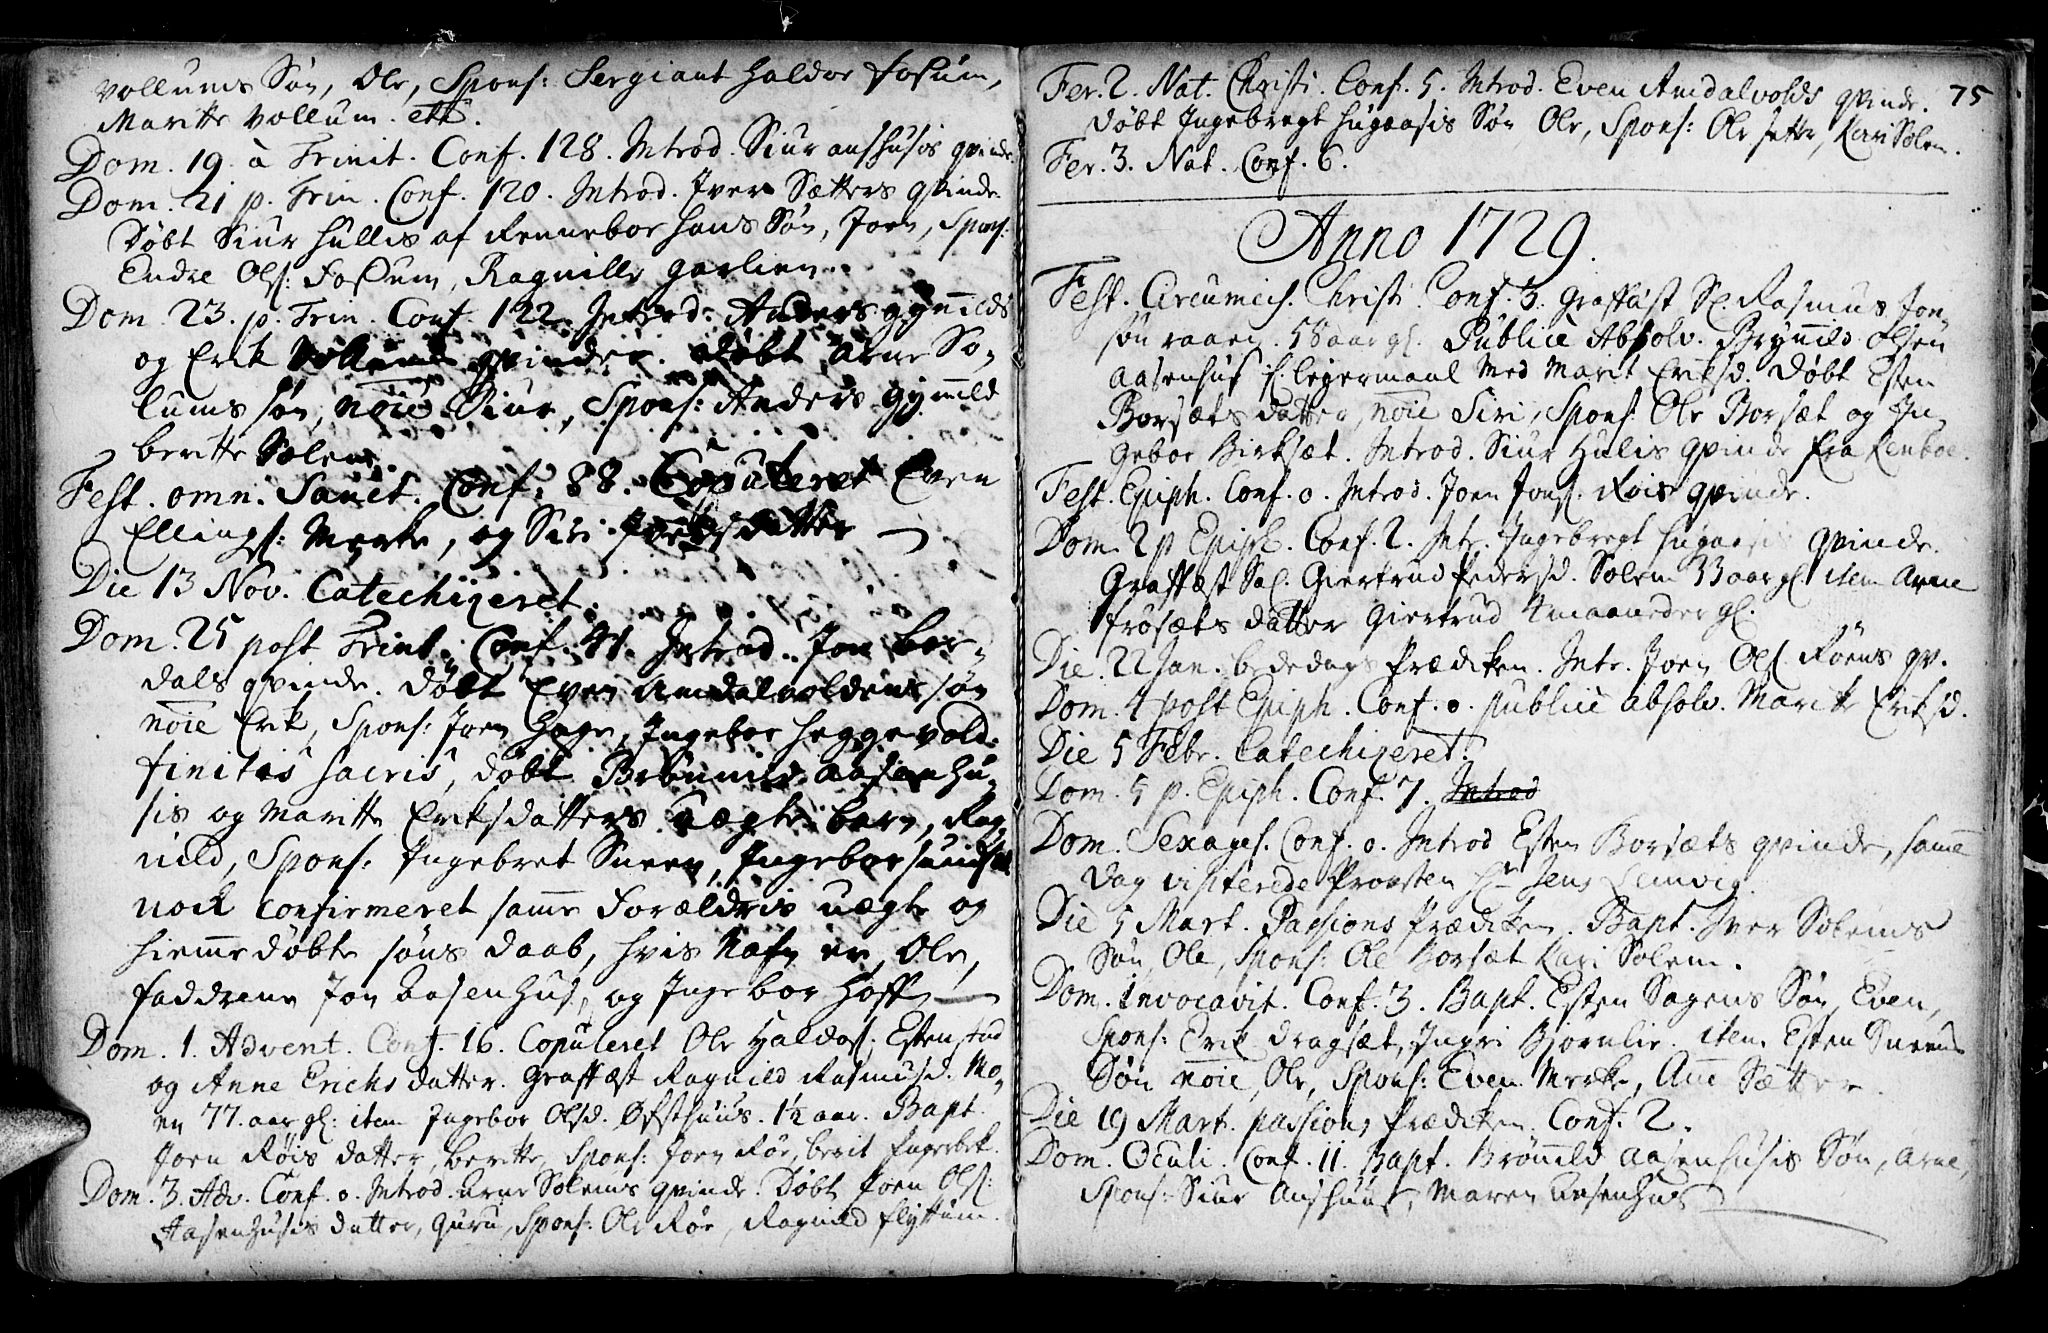 Vollums Søn, Ole, Spons: Sergiant Haldor Fossum,
Maritte Vollum. etc.
Dom. 19. à Trinit. Conf. 128. Introd. Siur Aashusis qvinde.
Dom. 21 p. Trin. Conf. 120. Introd. Iver Sætters qvinde.
Døbt Siur Hullis af Renneboe hans Søn, Joen, Spons:
Endre Ols: Fossum, Ragnille Garlien.
Dom. 23. p. Trin. Conf. 122. Introd. Anders Gynnilds
og Erik Vollums qvinder. Døbt Arne So-
lums søn, noie Siur, Spons: Anders Gynnild
beritte Solem.
Fest. omn. Sanct. Conf. 88. Coputeret Even
Ellings: Merke, og Siri datter
Die 13 Nov. Catechizeret.
Dom. 25 post Trinit. Conf. 41. Introd. Jon bor-
dals qvinde. Døbt Even Amdalvoldens søn
noie Erik, Spons: Joen Hage, Ingebor Heggevold.
finitis sacris, døbt Brønnild Aasenhu-
sis og Maritte Eriksdatters uægte barn, Rag-
nild, Spons: Ingebret Sneen, Ingebor
nock confirmeret samme Forældris uægte og
hiemmedøbte søns daab, hvis Nafn er Ole,
faddrene Jon Aasenhus, og Ingebor Hoff
Dom. 1. Advent. Conf. 16. Copuleret Ole Haldos: Estenstad
og Anne Erichsdatter. Graffæst Ragnild Rasmusd. Mo-
en 77. aar gl: item Ingebor Olsd. Øfsthuus. 1½ aar. Bapt.
Joen Røis datter, beritte, Spons: Joen Røe, berit Engebek.
Dom. 3. Adv. Conf. 0. Introd. Arne Solems qvinde. Døbt Joen Ols:
Aasenhusis datter, Guru, Spons: Ole Røe, Ragnild Flyttum.
Fer. 2. Nat. Christi. Conf. 5. Introd. Even Amdalvolds qvinde. 75
Døbt Ingebregt Hugaasis Søn Ole, Spons: Ole Sætte, Kari Solem.
Fer. 3. Nat. Conf. 6.
Anno 1729.
Fest. Circumcis. Christi Conf. 3. Graffæst Sl. Rasmus Jon-
søn 58 aar gl. Publicè Absolv. Brynild Olsen
Aasenhus f. legermaal med Marit Eriksd. Døbt Esten
Borsæts datter, noie Siri, Spons. Ole Borsæt og In-
gebor Birksæt. Introd. Siur Hulis qvinde fra Renboe.
Fest. Epiph. Conf. 0. Introd. Joen Jons: Røis qvinde.
Dom. 2 p Epiph. Conf. 2. Intr. Ingebregt Hugaasis qvinde.
Graffæst Sal. Giertrud Pedersd. Solem 33 aar gl. item Arne
Frøsæts datter Giertrud 4 maaneder gl.
Die. 22 Jan. bededags Prædiken. Intr. Joen Ols. Røens qv.
Dom. 4 post Epiph. Conf. 0. publicè absolv. Marite Eriksd.
Die 5 Febr. Catechizeret.
Dom. 5 p. Epiph. Conf. 7. Introd
Dom. Sexages. Conf. 0. Introd Esten Borsæts qvinde, samme
Dag visiterede Provsten Hr Jens Lemvig.
Die 5 Mart. Passions Prædiken. Bapt. Iver Solems
Søn, Ole, Spons: Ole Borsæt Kari Solem.
Dom. Invocavit. Conf. 3. Bapt. Esten Sagens Søn, Even,
Spons: Erik Dragsæt, Ingri Biørnlie. item Esten Sneens
Søn noie, Ole, Spons: Even Merke, Anne Sætter.
Die 19 Mart. passions Prædiken. Conf. 2.
Dom. Oculi. Conf. 11. Bapt. Brønnild Aasenhusis Søn, Arne,
Spons: Siur Aashuus, Maren Aasenhus